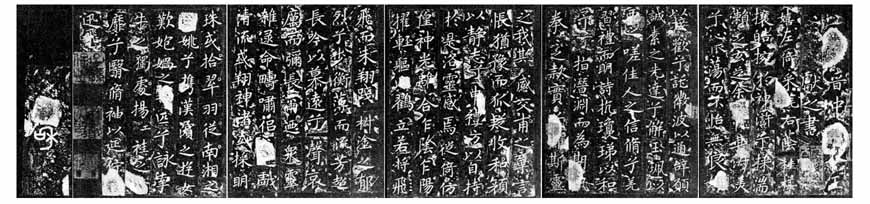 獻之書
嬉左倚采旄右蔭桂旗
攘皓腕於神滸兮採湍
瀨之玄芝余
兮心振蕩而不怡無良
以接歡兮託微波以通辭願
誠素之先達兮解玉珮以
嗟佳人之信脩兮羌
習禮而明詩抗瓊珶以和
予兮指潛淵而為期
眷之款實 斯靈
之我欺感交甫之棄言
悵猶豫而狐疑收和顏
以靜志兮申禮防以自持
於是洛靈感焉徙倚彷
徨神光離合乍陰乍陽
擢輕軀以鶴立若將飛
飛而未翔踐椒塗之郁
烈兮步蘅薄而流芳超
長吟以慕遠兮聲哀
厲而彌長爾迺衆靈
雜遝命疇嘯侶或戲
清流或翔神渚或採明
珠或拾翠羽從南湘之
二姚兮攜漢濱之游女
歎匏媧之無匹兮詠牽
牛之獨處揚輕袿之
靡兮翳脩袖以延佇
迅飛